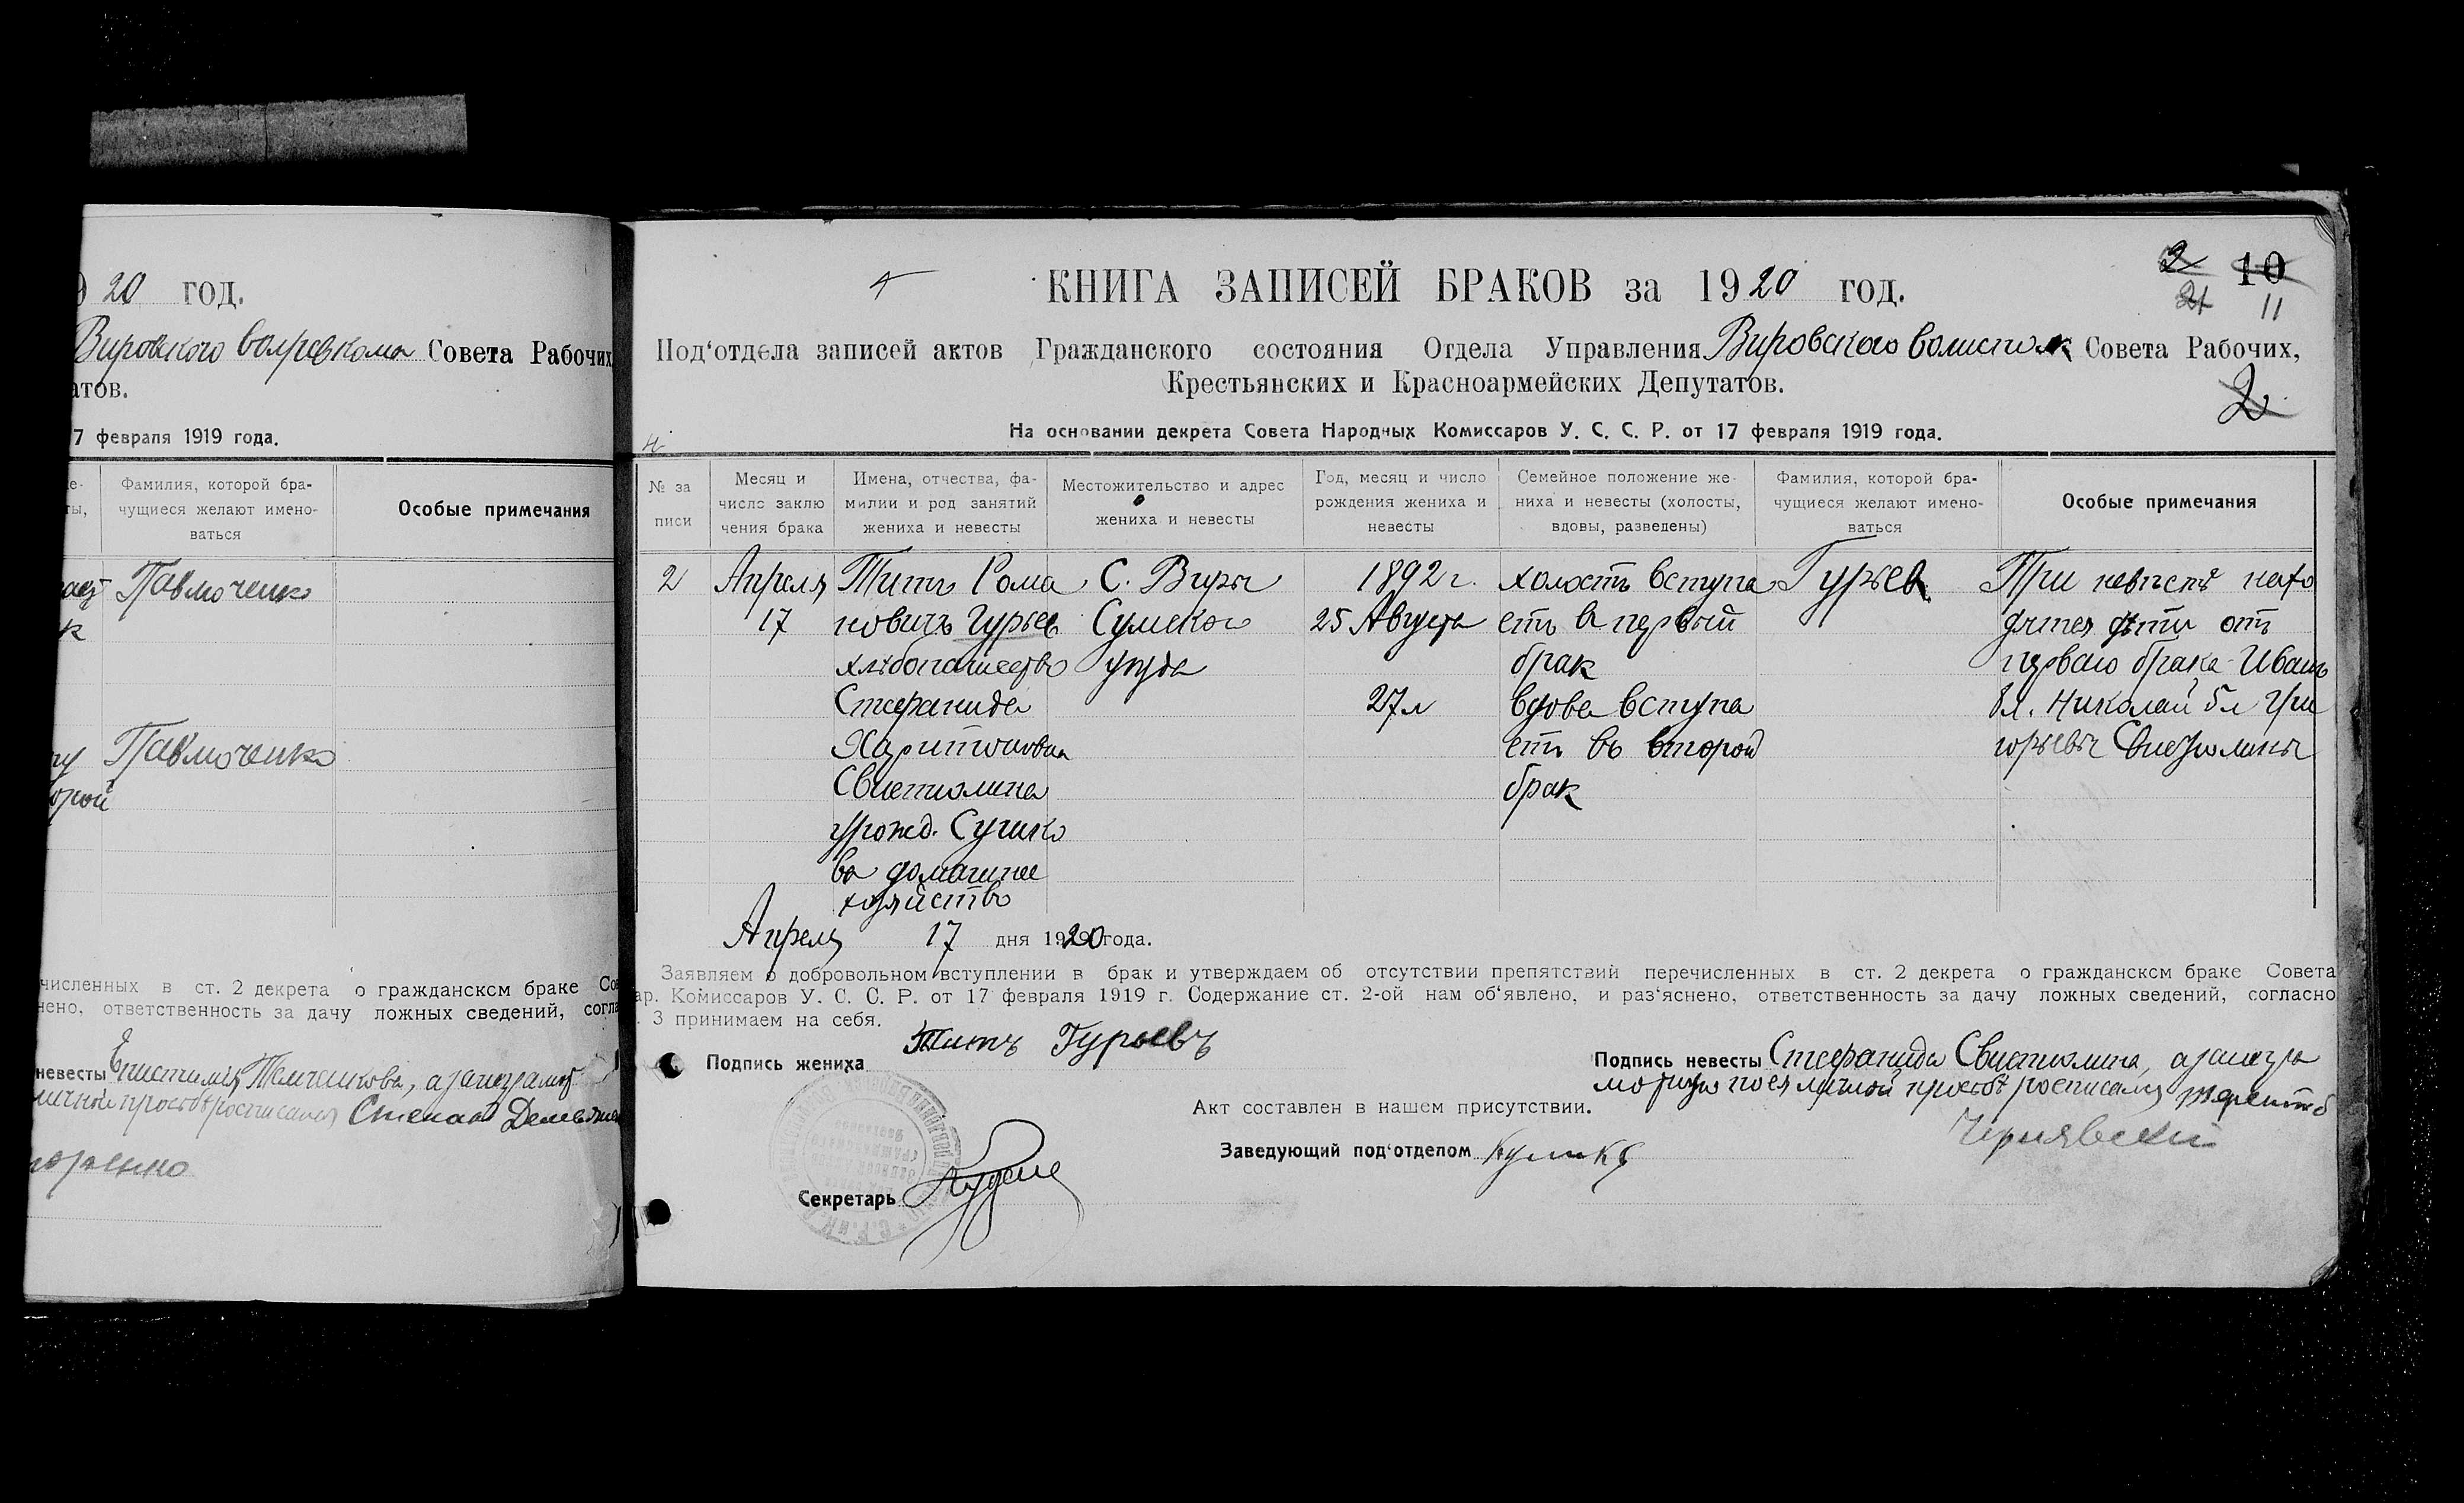 20 год.
Вировского волревкома Совета Рабочих
атов.
7 февраля 1919 года.
Фамилия, которой бра-
чущиеся желают имено-
ваться
Особые примечания
Павлюченко
к
Павлюченко
орой
численных в ст. 2 декрета о гражданском браке Со
нено, ответственность за дачу ложных сведений, согла
невесты Епистимия Темченкова, а за неграмот
личной просьбе росписался Степан
2 10
21 11
КНИГА ЗАПИСЕЙ БРАКОВ за 1920 год.
Под‘отдела записей актов Гражданского состояния Отдела Управления Вировского Волисполк Совета Рабочих,
Крестьянских и Красноармейских Депутатов.
2
На основании декрета Совета Народных Комиссаров У. С. С. Р. от 17 февраля 1919 года.
№ за
писи
Месяц и
число заклю
чения брака
Имена, отчества, фа-
милии и род занятий
жениха и невесты
Местожительство и адрес
жениха и невесты
Год, месяц и число
рождения жениха и
невесты
Семейное положение же-
ниха и невесты (холосты,
вдовы, разведены)
Фамилия, которой бра-
чущиеся желают имено-
ваться
Особые примечания
2
Апреля
17
Титъ Рома
новичъ Гурьев
хлебопашество
Стефанида
Харитоновна
Свистюлина
урожд. Сушко
ва домашнее
хозяйство
С. Виры
Сумского
уезда
1892 г.
25 Августа
27 л
холостъ вступа
етъ в первый
брак
вдова вступа
етъ въ второй
брак
Гурьев
При невесте нахо
дятся дети отъ
перваго брака Иванъ
8 л. Николай 5 л Гри
горьевы Свистюлины
Апреля 17 дня 1920 года.
Заявляем о добровольном вступлении в брак и утверждаем об отсутствии препятствий перечисленных в ст. 2 декрета о гражданском браке Совета
ар. Комиссаров У. С. С. Р. от 17 февраля 1919 г. Содержание ст. 2-ой нам об‘явлено, и раз‘яснено, ответственность за дачу ложных сведений, согласно
. 3 принимаем на себя.
Подпись жениха Титъ Гурьевъ
Подпись невесты Стефанида Свистюлина, а за негра
мотную по ея личной просьбе росписался Терентий
Чернявский
Акт составлен в нашем присутствии.
Заведующий под‘отделом
Секретарь